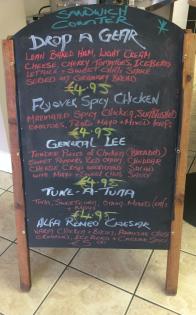 SANDWICH
DROP A GEAR
LEAN BAKED HAM, LIGHT CREAM
CHEESE, CHERRY TOMATOES, ICEBERG
LETTUCE + SWEET CHILLI SAUCE
SERVED ON BREAD
£4.95
FLYOVER SPICY CHICKEN
MARINATED SPICY CHICKEN, SUNBLUSHED
TOMATOES, PESTO MAYO + MIXED LEAFS
£4.95
GENERAL LEE
TENDER PIECES OF CHICKEN (BREADED)
SWEET RED ONION CHEDDAR
CHEESE CRISP SALAD
WITH MAYO + SWEET CHILLI SAUCE
£4.95
TUNE-A-TUNA
TUNA, SWEETCORN, ONION, MIXED LEAFS
+ MAYO
£4.95
ALFA ROMEO CAESAR
WARM CHICKEN + BACON, PARMESAN CHEESE
CROUTONS, ICEBERG + CAESAR SAUCE
£5.00